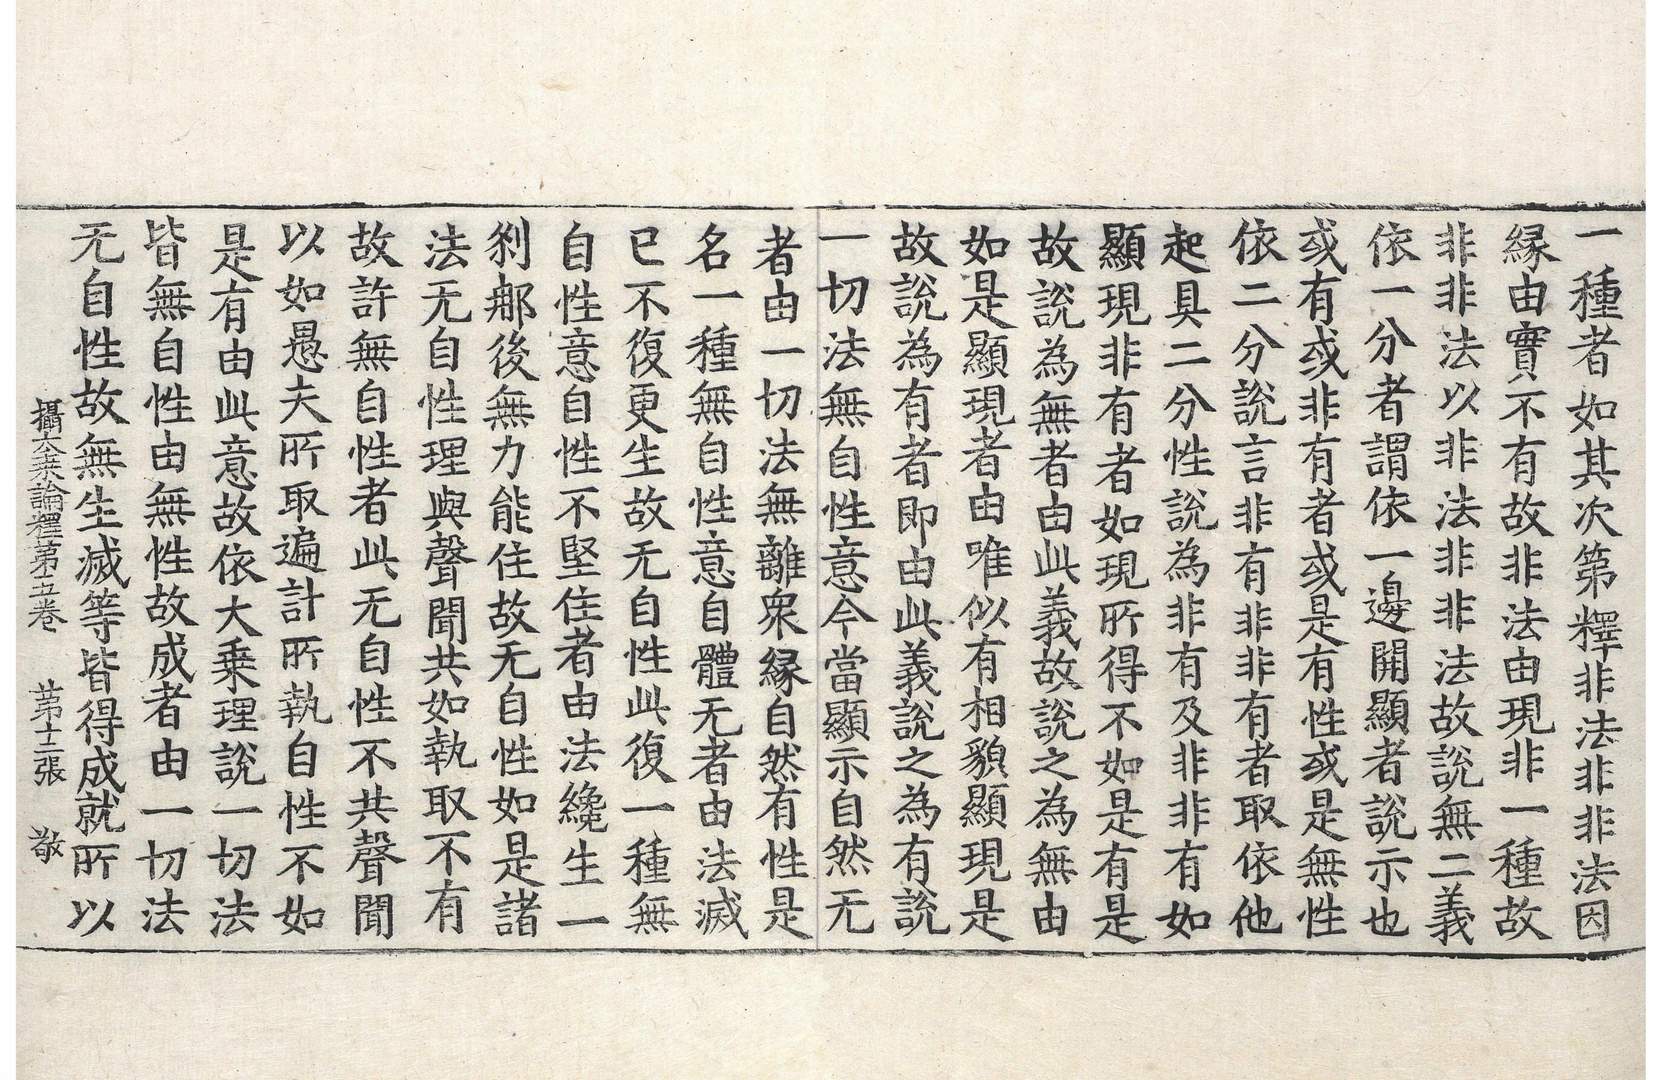 一種者如其次第釋非法非非法因
縁由實不有故非法由現非一種故
非非法以非法非非法故說無二義
依一分者謂依一邊開顯者說示也
或有或非有者或是有性或是無性
依二分說言非有非非有者取依他
起具二分性說為非有及非非有如
顯現非有者如現所得不如是有是
故說為無者由此義故說之為無由
如是顯現者由唯似有相貌顯現是
故說為有者即由此義說之為有說
一切法無自性意今當顯示自然无
者由一切法無離衆縁自然有性是
名一種無自性意自體无者由法滅
已不復更生故无自性此復一種無
自性意自性不堅住者由法纔生一
刹那後無力能住故无自性如是諸
法无自性理與聲聞共如執取不有
故許無自性者此无自性不共聲聞
以如愚夫所取遍計所執自性不如
是有由此意故依大乗理說一切法
皆無自性由無性故成者由一切法
无自性故無生滅等皆得成就所以
攝大乗論釋第五卷　第十二張　敬